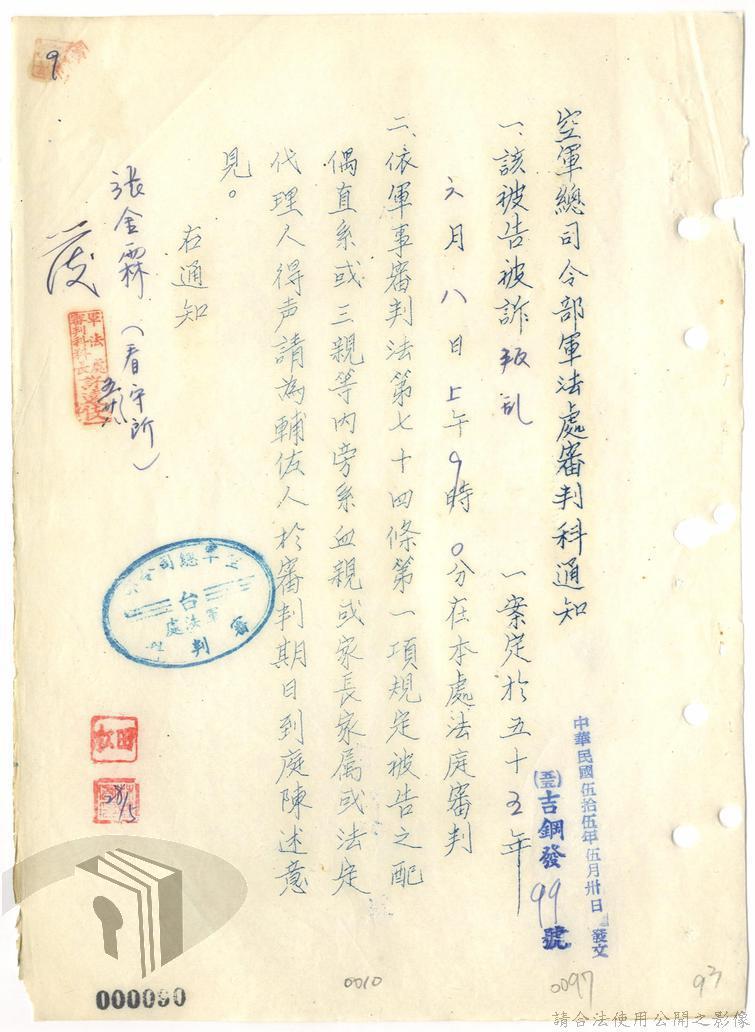 空軍總司令部軍法處審判科通知
中華民國伍拾伍年伍月卅日 發文
(55)吉鋼發99號
一、該被告被訴叛乱 一案定於五十五年
六月八日上午9時0分在本處法庭審判
二、依軍事審判法第七十四條第一項規定被告之配
偶直系或三親等內旁系血親或家長家属或法定
代理人得声請為輔佐人於審判期日到庭陳述意
見。
右通知
張金霖(看守所)
軍法處
審判科科長
空軍總司令部
台
軍法處
審判
田
28/5
9
000090
0010
0097
93
請合法使用公開之影像